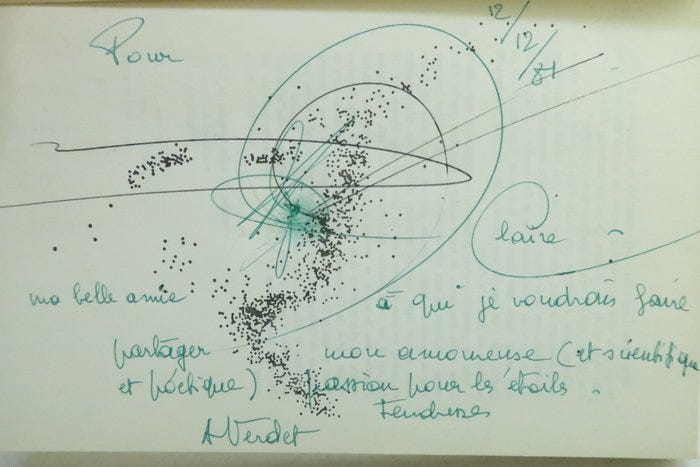 Pour
12/12/81
Claire
ma belle amie à qui je voudrais faire
partager mon amoureuse (et scientifique
et poétique) passion pour les étoiles.
Tendresses
A Verdet